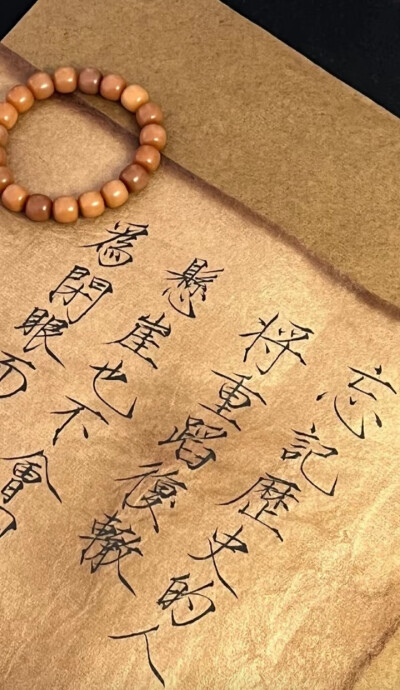 忘記歷史的人
將重蹈復轍
懸崖也不會
爲閉眼而